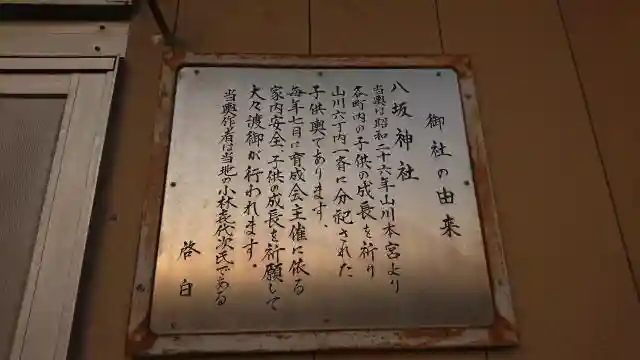 御社の由来
八坂神社
当輿は昭和二十六年山川本宮より
各町内の子供の成長を祈り
山川六丁内一斉に分祀された
子供輿であります、
毎年七月に育成会主催に依る
家内安全、子供の成長を祈願して
大々渡御が行われます。
当輿作者は当地の小林喜代次氏である
啓白